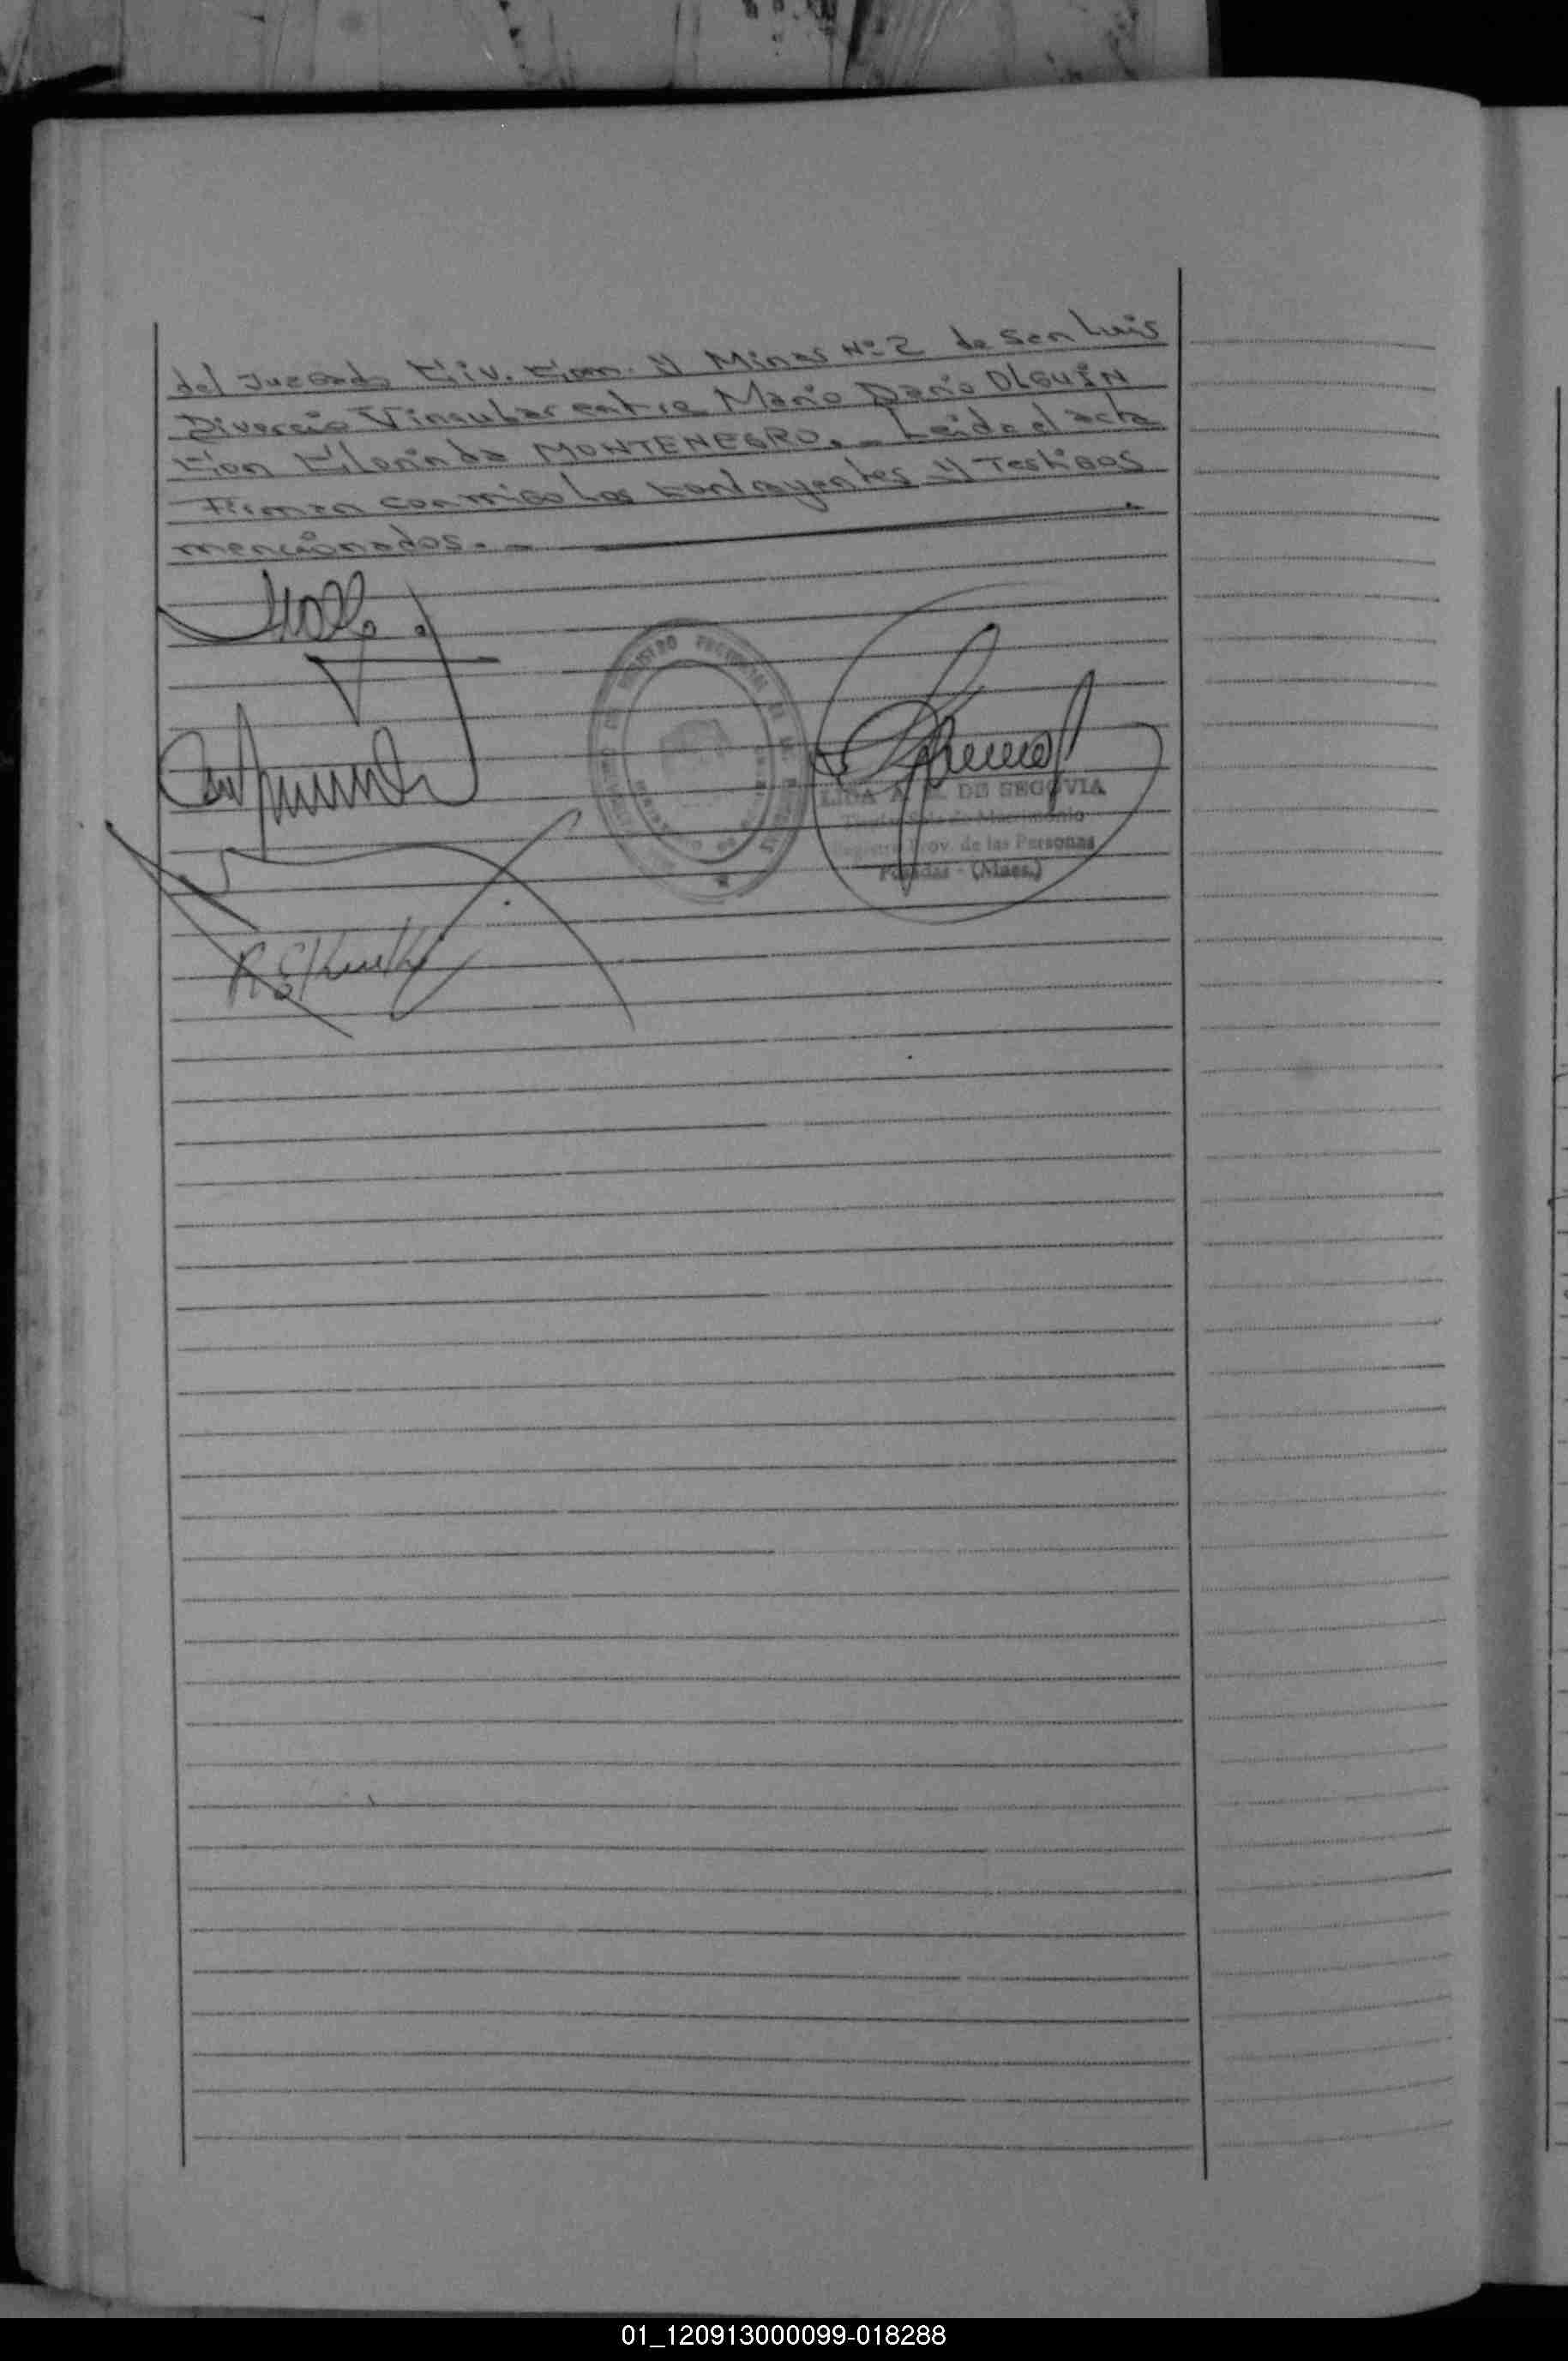 del Juzgado Civ. Com. y Minas Nº 2 de San Luis
Divorcio Vinsular entre Mario Dario OLGUIN
Con Clorinda MONTENEGRO. _ Leida el acta
Firman conmigo Los Contrayentes y Testigos
mencionados. _
REGISTRO PROVINCIAL DE LAS PERSONAS
DE SEGOVIA
Titular Sala de Matrimonio
Registro Prov. de las Personas
Posadas - (Mnes.)
01_120913000099-018288